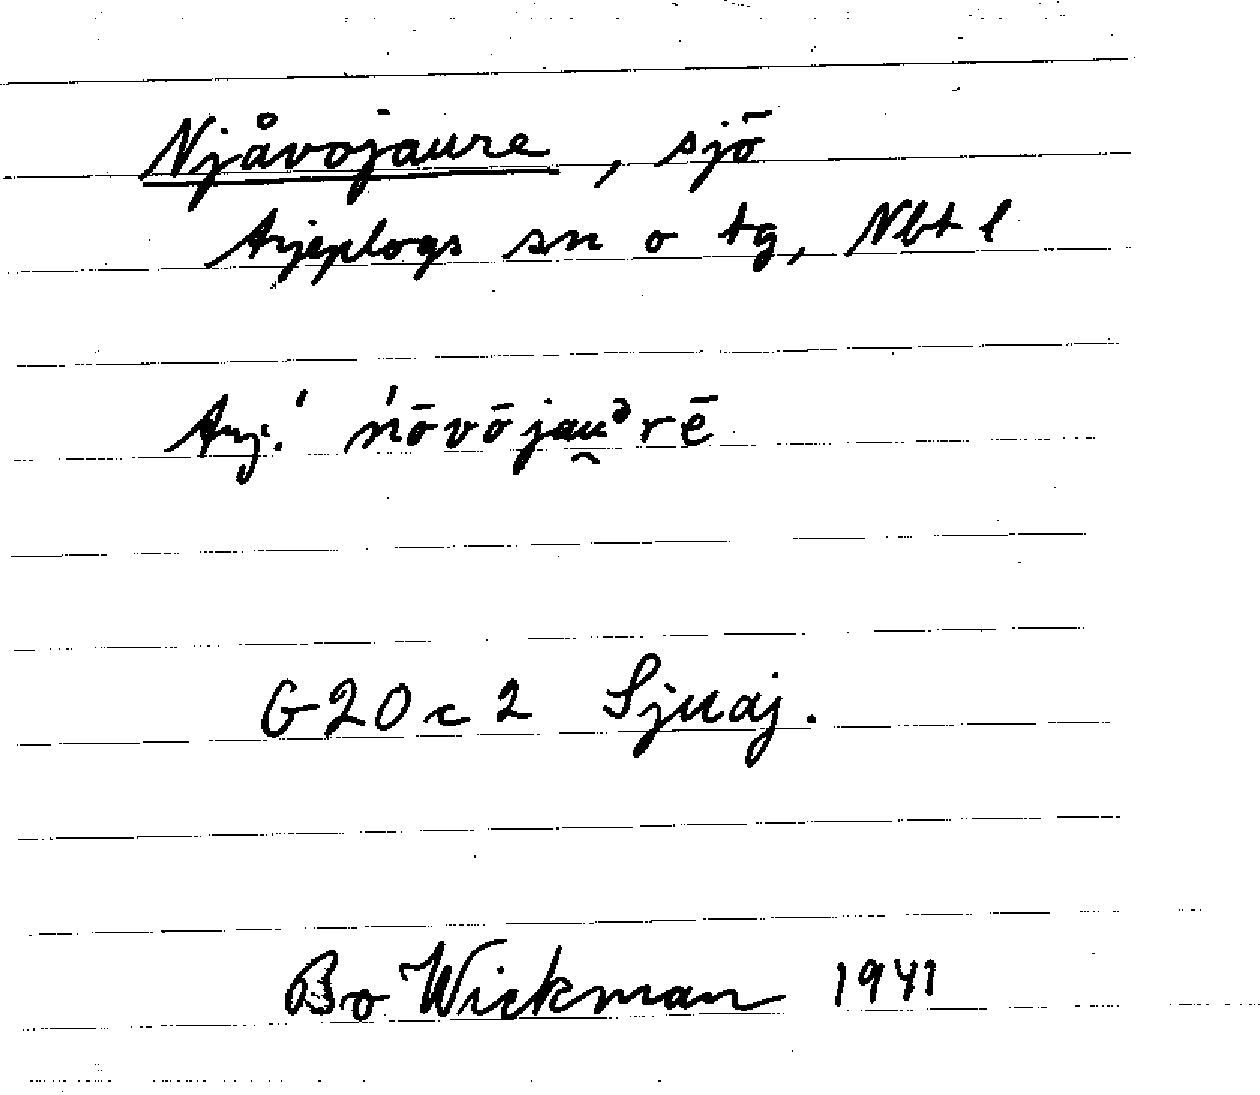 Njåvojaure, sjö
Arjeplogs sn o tg, Nbt l
Arj.' ń̄ōvōjau̯ᵊrē
G20c2 Sjuaj.
Bo Wickman 1941